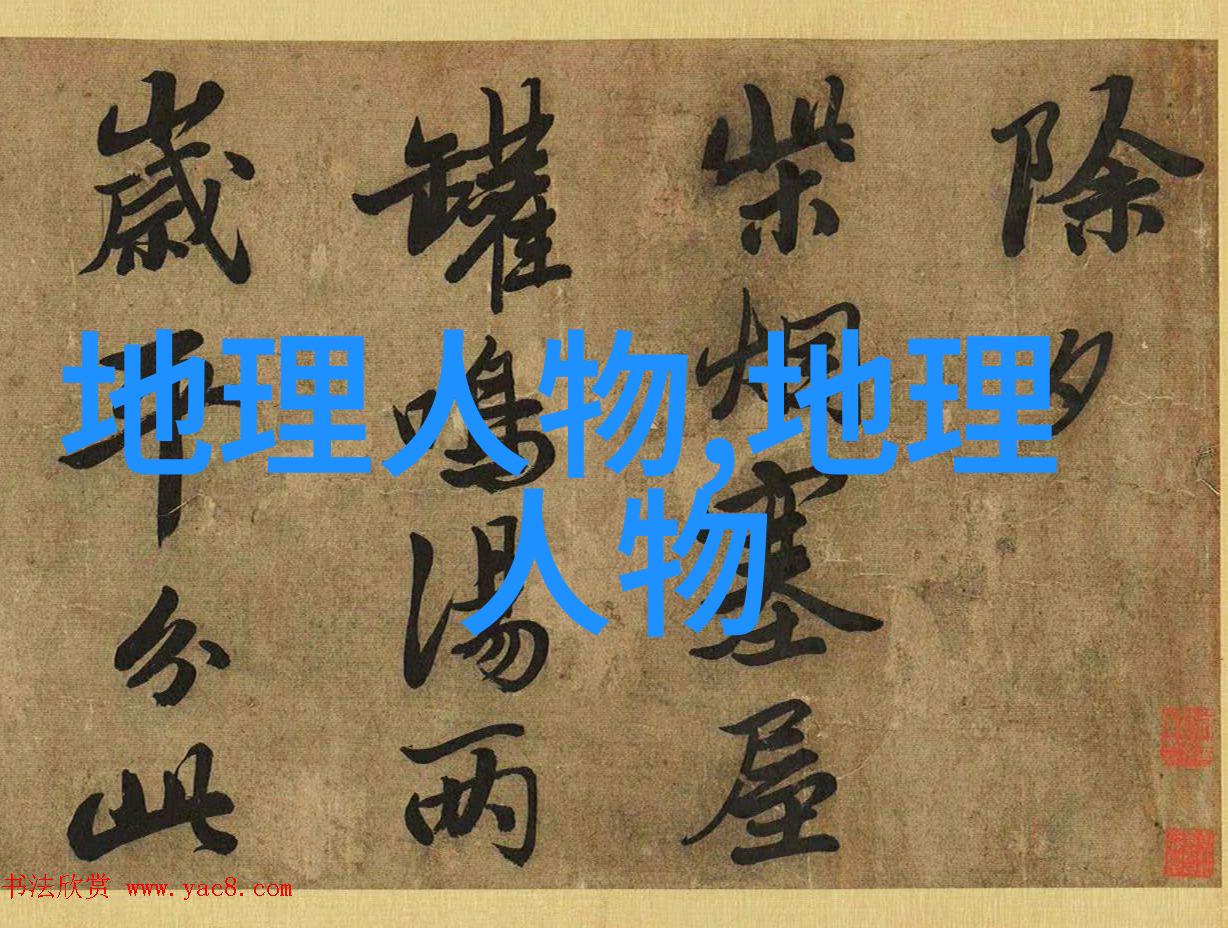 除夕
柴烟塞屋
罐鳴湯两
歲平分此
地理人物,地理
人物
书法欣赏 www.yac8.com